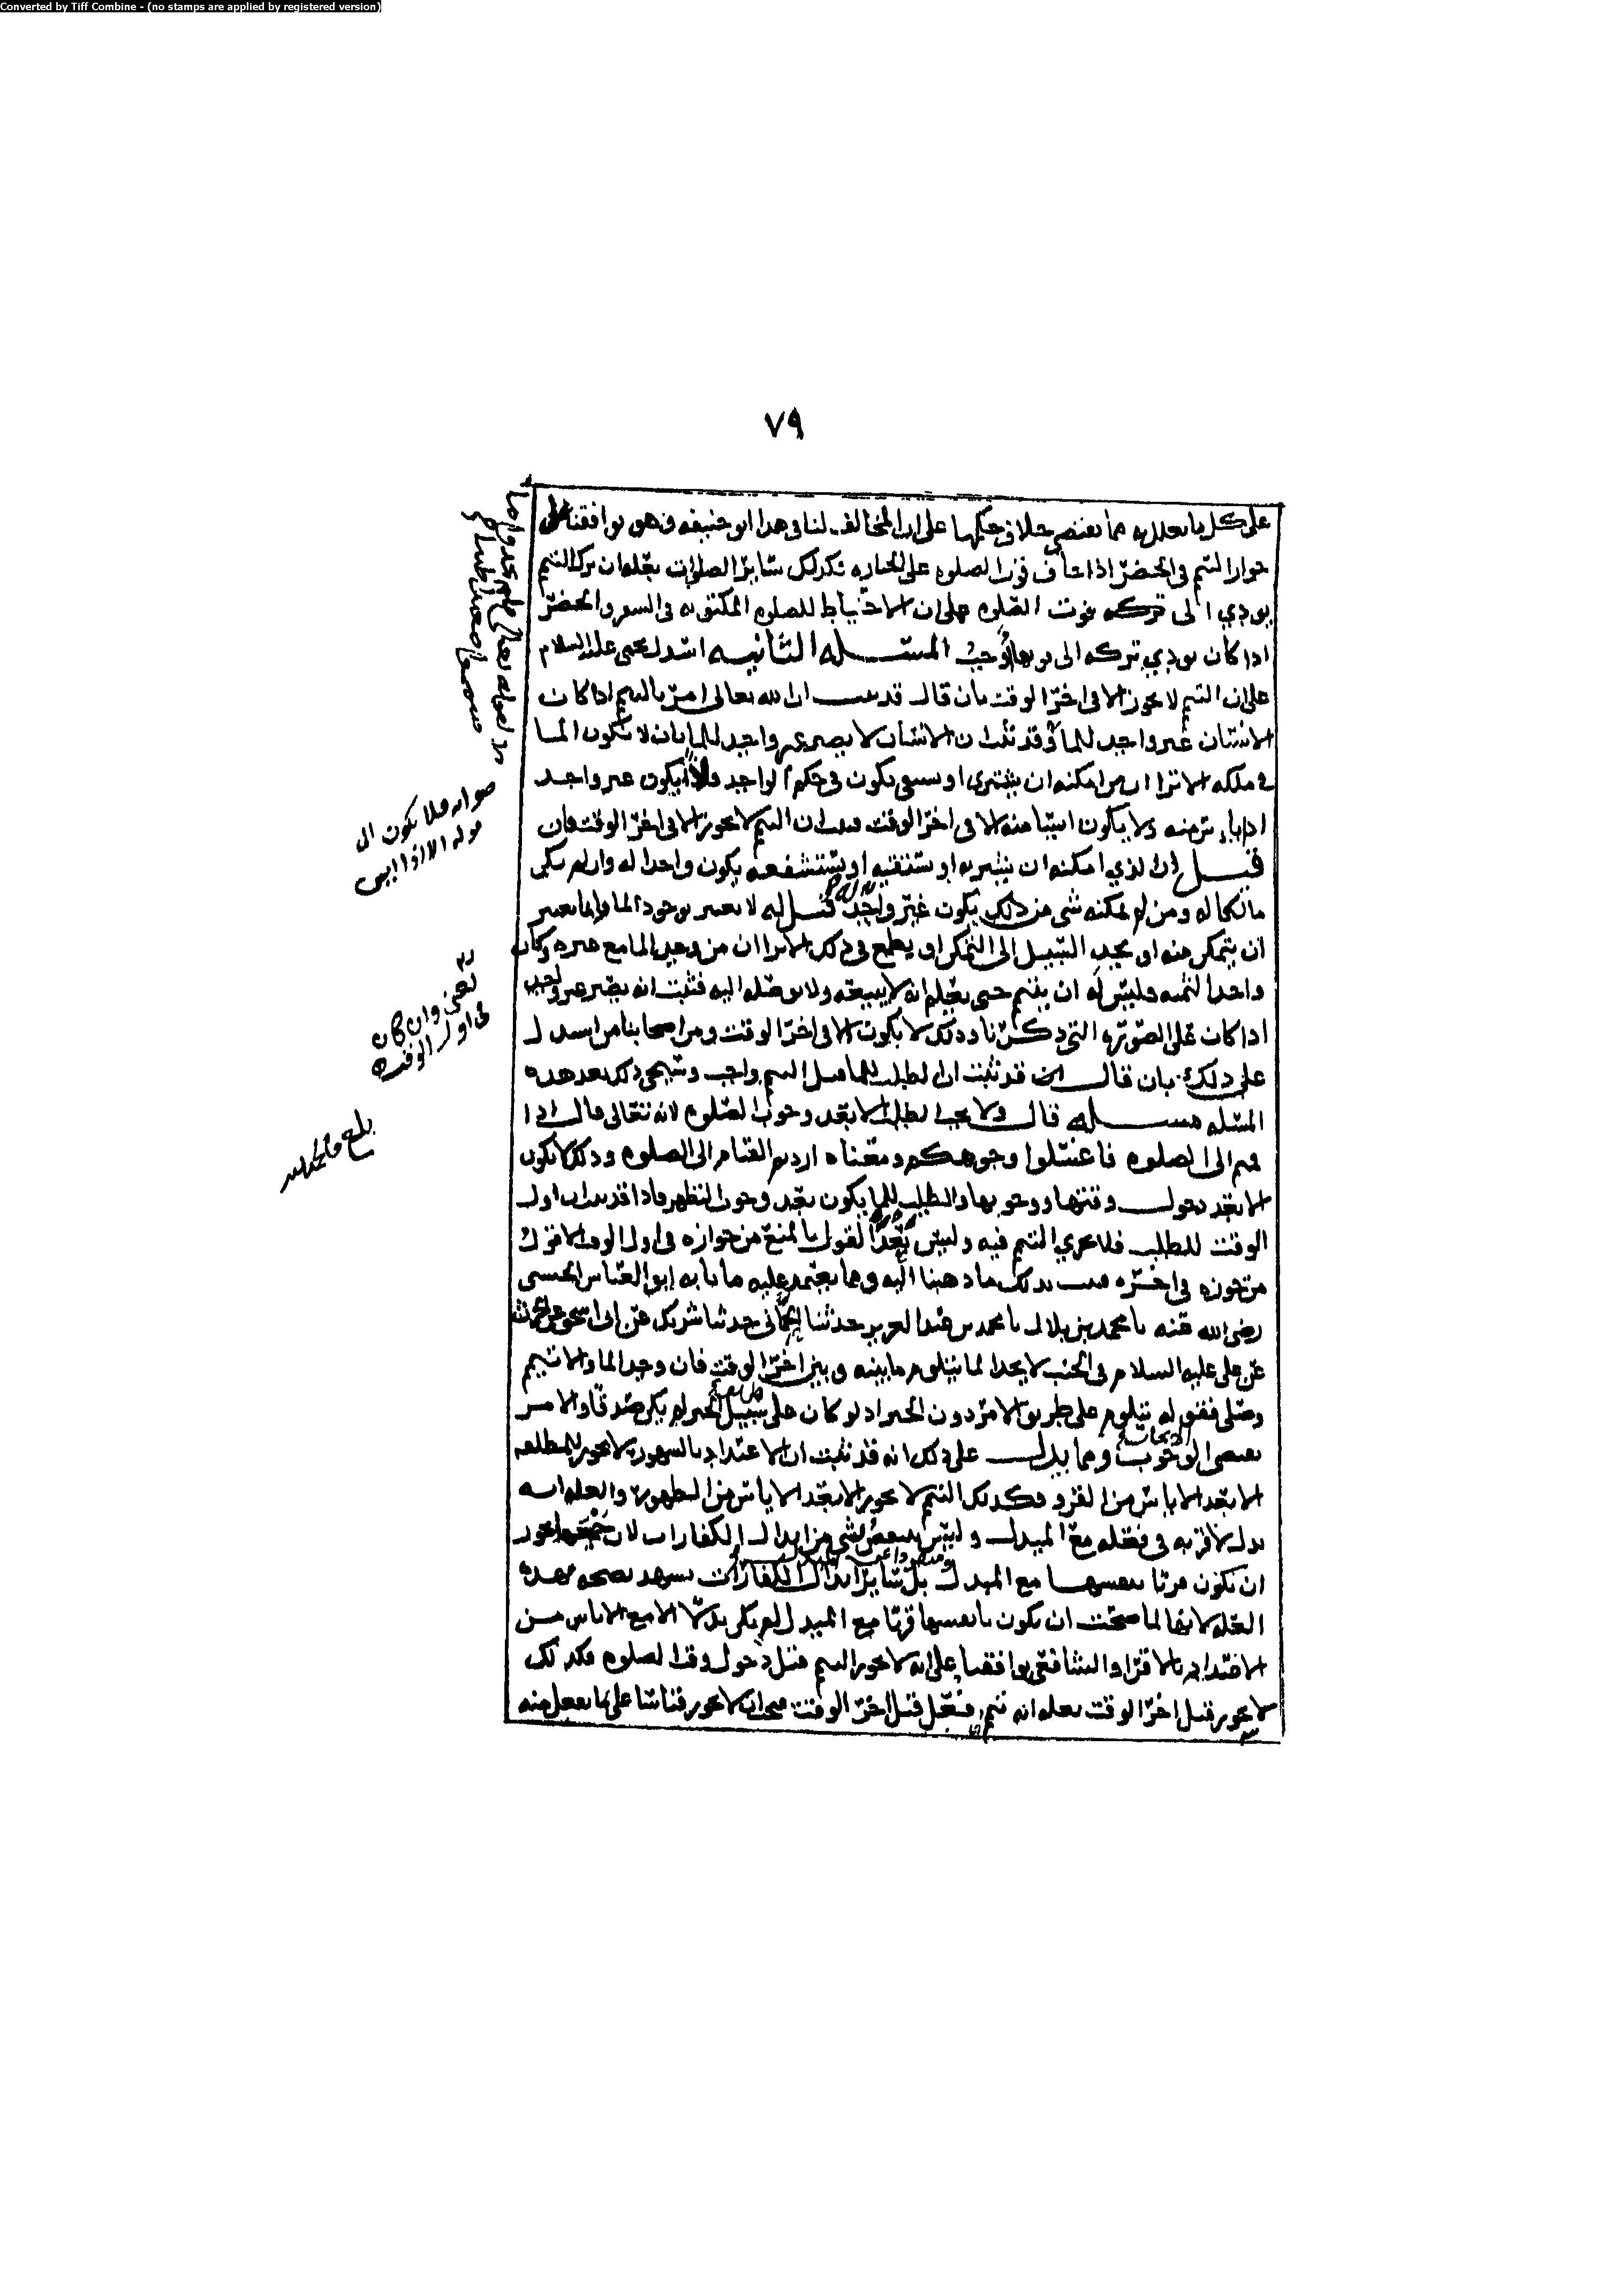 Converted by Tiff Combine - (no stamps are applied by registered version)
٧٩
على كل ما يعلل به مما يقتضي خلاف حكمها على ان المخالف لنا في هذا ابو حنيفه وهو يوافقنا على
جواز التيمم في الحضر اذا خاف فوت الصلوه على الجنازه فكذلك سائر الصلوات بعله ان ترك التيمم
يودي الى تركه فوت الصلوه على ان الاحتياط للصلوه المكتوبه في السفر والحضر
اذا كان يودي تركه الى فوتها وجب المسئله الثانيه استدل يحيى عليه السلام
على ان التيمم لا يجوز الا في اخر الوقت بان قال قد ثبت ان الله تعالى امر بالتيمم اذا كان
الانسان غير واجد للما وقد ثبت ان الانسان لا يصير غير واجد للما بان لا يكون الما
في ملكه الا ترا ان من امكنه ان يشتري او يستقي يكون في حكم الواجد ولا يكون غير واجد
اذا يئس منه ولا يكون ايسا منه الا في اخر الوقت فثبت ان التيمم لا يجوز الا في اخر الوقت فان
قيل ان الذي امكنه ان يشتريه او يستقيه او يستشفعه يكون واجدا له وان لم يكن
مالكا له ومن لم يمكنه شي من ذلك يكون غير واجد قيل له لا يعتبر بوجود الما وانما يعتبر
ان يتمكن منه او يجد السبيل الى التمكن او يطمع في ذلك الا ترا ان من وجد الما مع غيره وكان
واجدا لثمنه فليس له ان يتيمم حتى يعلم انه لا يبيعه ولا يوصله اليه فثبت انه يصير غير واجد
اذا كان على الصوره التي ذكرنا وذلك لا يكون الا في اخر الوقت ومن اصحابنا من استدل
على ذلك بان قال قد ثبت ان الطلب للما قبل التيمم واجب وسيجي ذلك بعد هذه
المسئله مسئله قال ولا يجب الطلب الا بعد وجوب الصلوه لانه تعالى قال اذا
قمتم الى الصلوه فاغسلوا وجوهكم ومعناه اردتم القيام الى الصلوه وذلك لا يكون
الا بعد دخول وقتها ووجوبها والطلب للما يكون بعد وجوب التطهر فاذا قد ثبت ان اول
الوقت للطلب فلا يجزي التيمم فيه وليس بعد القول بالمنع من جوازه في اول الوقت الا قول
من يجوزه في اخره فثبت بذلك ما ذهبنا اليه ومما يعتمد عليه ما نا به ابو العباس الحسني
رضي الله عنه نا محمد بن بلال نا محمد بن عبد العزيز حدثنا الحماني حدثنا شريك عن ابي اسحق عن الحرث
عن علي عليه السلام في الجنب لا يجد الما يتلوم ما بينه وبين اخر الوقت فان وجد الما والا تيمم
وصلى فقوله يتلوم على طريق الامر دون الخبر اذ لو كان على سبيل الخبر لم يكن صدقا والامر
يقتضي الوجوب ومما يدل على ذلك انه قد ثبت ان الاعتداد بالشهور لا يجوز للمطلقه
الا بعد الاياس من القرو فكذلك التيمم لا يجوز الا بعد الاياس من الطهور والعله انه
بدل لا قربه في فعله مع المبدل وليس ينتقض بشي من ابدال الكفارات لان جميعها يجوز
ان تكون قربا بنفسها مع المبدل بل سائر ابدال الكفارات يشهد بصحه هذه
العله لانها لما صحت ان يكون بانفسها قربا مع المبدل لم يكن بدلا الا مع الاياس من
الاعتداد بالاقرا والشافعي يوافقنا على انه لا يجوز التيمم قبل دخول وقت الصلوه فكذلك
لا يجوز قبل اخر الوقت بعله انه تيمم فعل قبل اخر الوقت فيجب ان لا يجوز قياسا على ما يفعل منه
صوابه فلا يكون الى
قوله الا اذا ايس
يعني وان كان
في اول الوقت